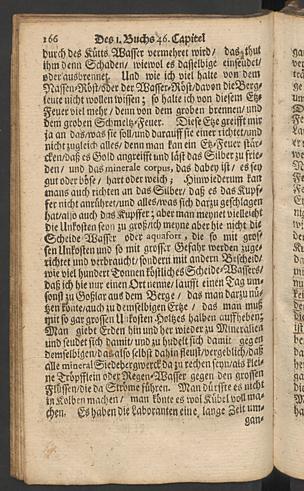 166 Des 1. Buchs 46. Capitel
durch des Kütts Wasser vermehret wird / das thut
ihm denn Schaden / wiewol es dasselbige einseudet /
oder ausbrennet. Und wie ich viel halte von dem
Nassen-Röst / oder der Wasser-Röst / davon die Berg-
leute nicht wollen wissen; so halte ich von diesem Etz-
Feuer viel mehr / denn von dem groben brennen / und
dem groben Schmeltz-Feuer. Diese Etze greifft mir
ja an das / was sie soll / und darauff sie einer richtet / und
nicht zugleich alles / denn man kan ein Etz-Feuer stär-
cken / daß es Gold angreifft und läst das Silber zu frie-
den / und das minerale corpus, das dabey ist / es sey
gut oder böse / hart oder weich; Hinwiederum kan
mans auch richten an das Silber / daß es das Kupf-
fer nicht anrühret / und alles / was sich darzu geschlagen
hat / also auch das Kupffer; aber man meynet vielleicht
die Unkosten seyn zu groß / ich meyne aber hie nicht die
Scheide-Wasser oder aquafort, die so mit gros-
sen Unkosten und so mit grosser Gefahr werden zuge-
richtet und verbraucht / sondern mit andern Bescheid /
wie viel hundert Tonnen köstliches Scheide-Wassers /
daß ich hie nur einen Ort nenne / laufft einen Tag um-
sonst zu Goßlar aus dem Berge / das man darzu nü-
tzen könte / auch zu demselbigen Ertze / das man muß
mit so gar grossen Unkosten Holtzes halben auffheben;
Man giebt Erden hin und her wieder zu Mineralien
und seudet sich damit / und zu hudelt sich damit gegen
demselbigen / das also selbst dahin fleust / vergeblich / daß
alle mineral Siedebergwerck da zu rechen seyn / als klei-
ne Tröpfflein oder Regen-Wasser gegen den grossen
Flüssen / die da Ströme führen. Man dürffte es nicht
in Kolben machen / man könte es wol Kübel voll ma-
chen. Es haben die Laboranten eine lange Zeit um-
gan-